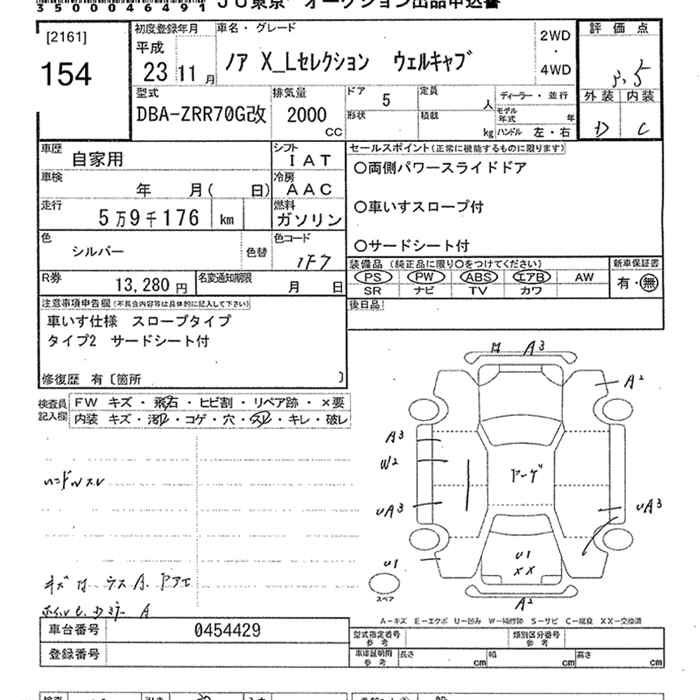 35000464911
JU東京 オークション出品申込書
[2161]
154
初度登録年月
平成
23 11 月
車名・グレード
ノア X_Lセレクション ウェルキャブ
2WD
・
4WD
評価点
3.5
外装 内装
D C
型式
DBA-ZRR70G改
排気量
2000
CC
ドア 5
形状
定員 人
積載 kg
ディーラー・並行
モデル年式 年
ハンドル 左・右
車歴 自家用
シフト IAT
車検 年 月( 日)
冷房 AAC
走行 5万9千176 km
燃料 ガソリン
色 シルバー 色替
色コード 1F7
R券 13,280円
名変通知期限 月 日
セールスポイント(正常に機能するものに限ります)
〇両側パワースライドドア
〇車いすスロープ付
〇サードシート付
装備品(純正品に限り〇をつけてください)
PS PW ABS エアB AW
SR ナビ TV カワ
新車保証書
有・無
後日品
注意事項申告欄(不具合内容等は具体的に記入して下さい)
車いす仕様 スロープタイプ
タイプ2 サードシート付
修復歴 有〔箇所 〕
検査員記入欄
FW キズ・飛石・ヒビ割・リペア跡・×要
内装 キズ・汚れ・コゲ・穴・スレ・キレ・破レ
ハンドルスレ
キズ
A
A3
A2
A3
W2
UA3
UA3
U1
U1
XX
A2
スペア
A-キズ E-エクボ U-凹み W-補修跡 S-サビ C-腐食 XX-交換済
車台番号 0454429
登録番号
型式指定番号 参考
類別区分番号 参考
車庫証明用 参考 長さ cm 幅 cm 高さ cm